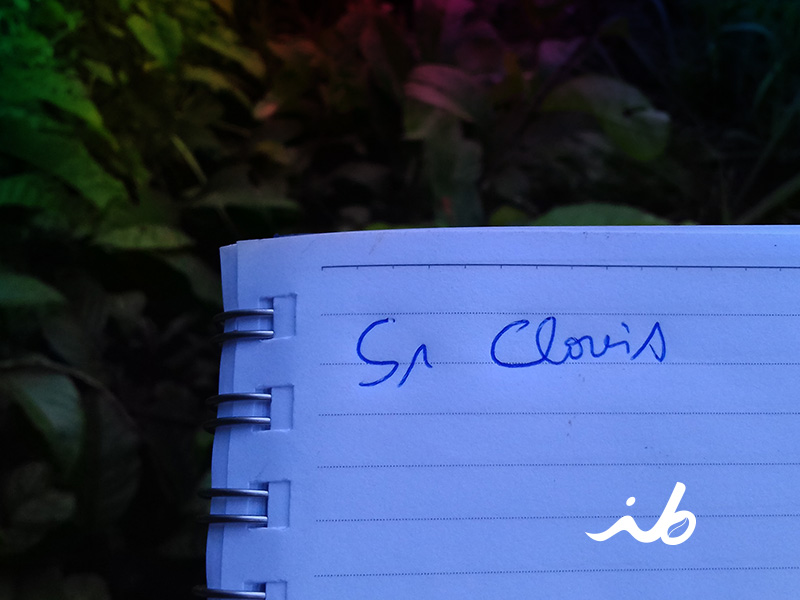 Sr Clovis
ib